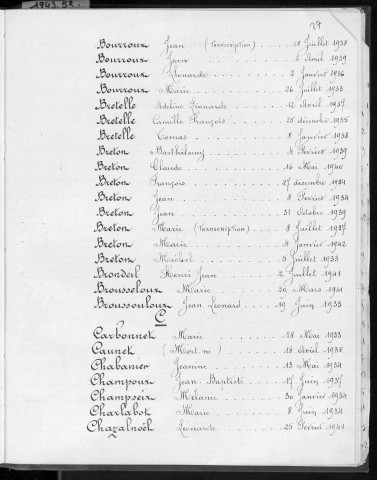 1943.52
27
Bourroux Jean (Transcription) 18 Juillet 1938
Bourroux Jean 2 Avril 1939
Bourroux Léonarde 2 Janvier 1936
Bourroux Marie 26 Juillet 1933
Bretelle Adeline Léonarde 12 Avril 1937
Bretelle Camille François 25 décembre 1935
Bretelle Comas 8 Janvier 1938
Breton Barthélemy 4 Février 1939
Breton Claude 16 Mai 1940
Breton François 27 décembre 1934
Breton Jean 8 Février 1934
Breton Jean 31 Octobre 1939
Breton Marie (Transcription) 8 Juillet 1937
Breton Marie 4 Janvier 1942
Breton Michel 5 Juillet 1933
Brondeil Henri Jean 2 Juillet 1941
Brousseloux Marie 20 Mars 1941
Broussouloux Jean Léonard 19 Juin 1935
C
Carbonnet Marie 28 Mai 1933
Caunet (Mort-né) 18 Avril 1938
Chabanier Jeanine 13 Mai 1934
Champoux Jean Baptiste 17 Juin 1937
Champseix Mélanie 30 Janvier 1934
Charlabot Marie 8 Juin 1934
Chazalnoël Léonarde 25 Février 1941